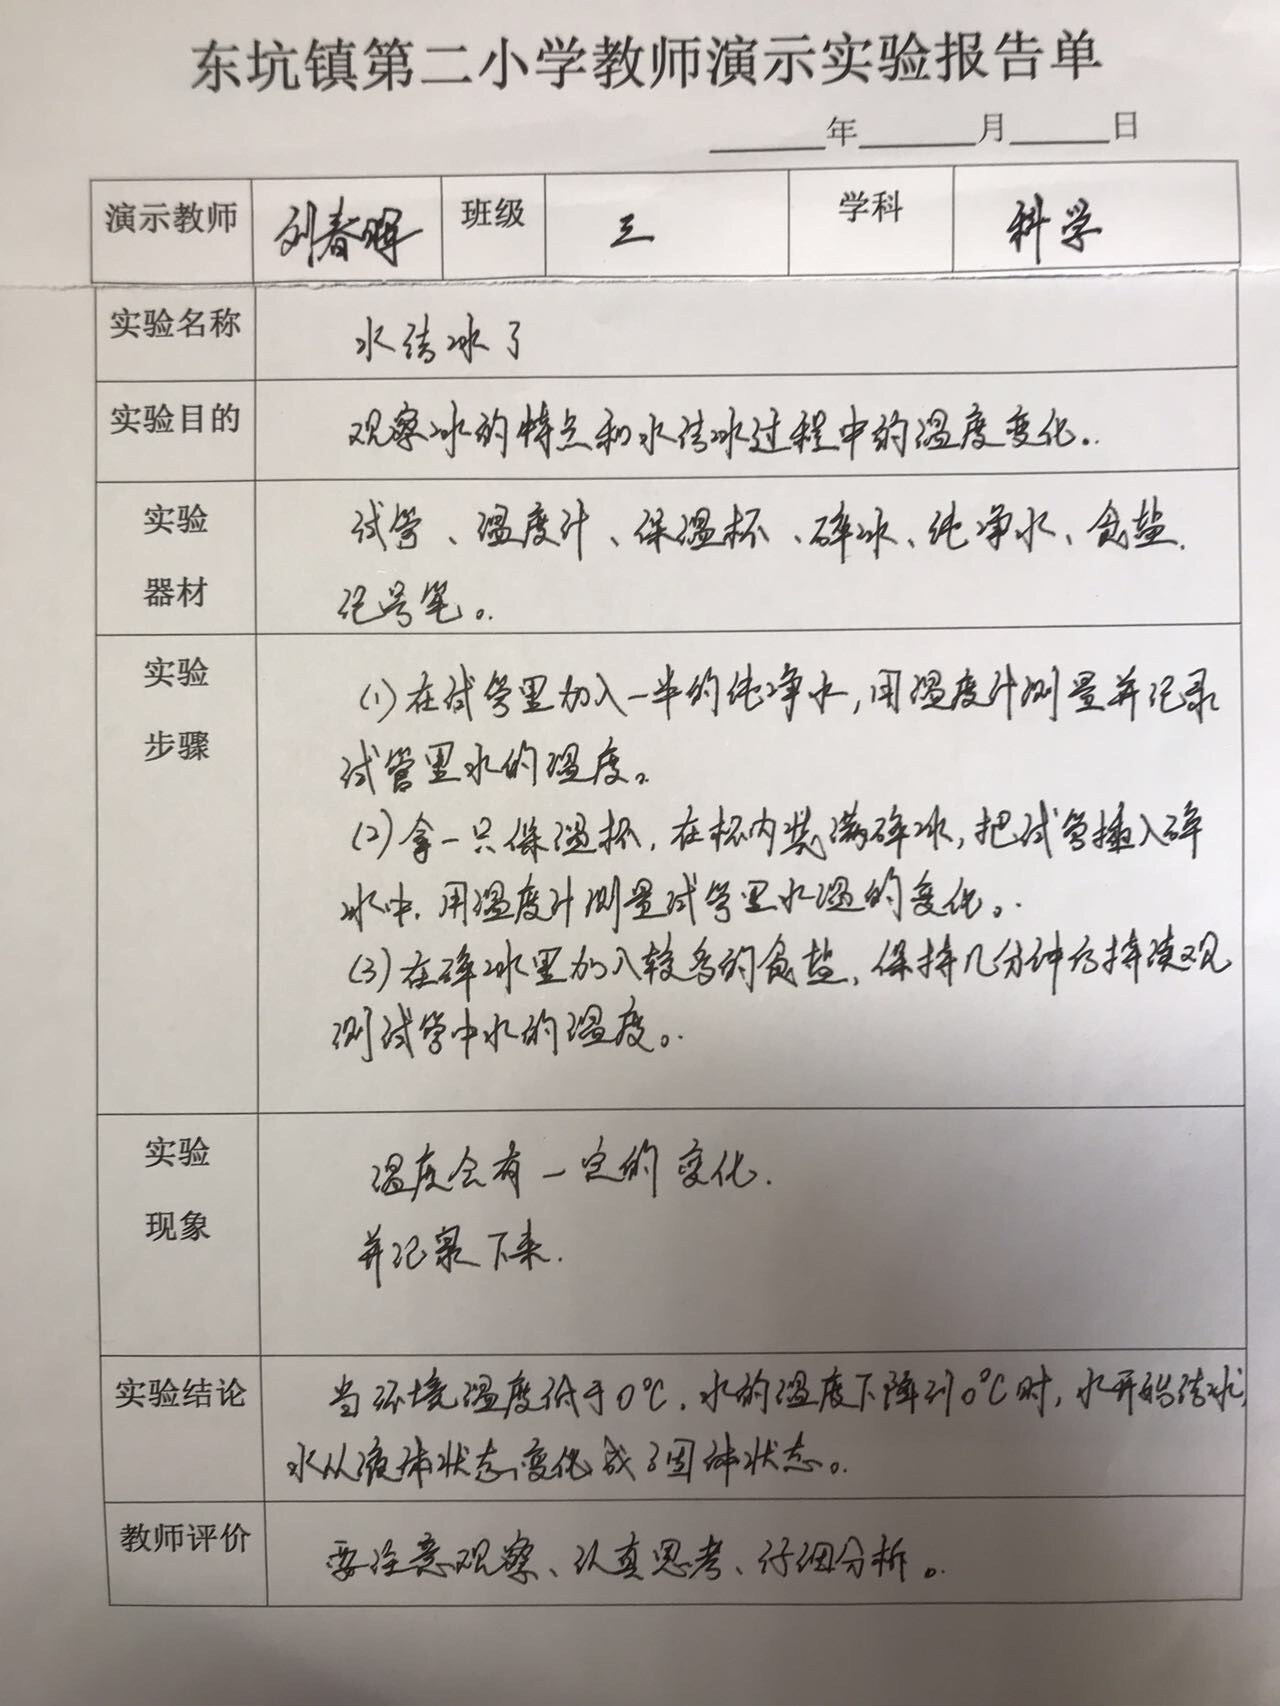 东坑镇第二小学教师演示实验报告单
年 月 日
演示教师 刘春晖 班级 三 学科 科学
实验名称 水结冰了
实验目的 观察冰的特点和水结冰过程中的温度变化。
实验 试管、温度计、保温杯、碎冰、纯净水、食盐、
器材 记号笔。
实验 (1)在试管里加入一半的纯净水,用温度计测量并记录
步骤 试管里水的温度。
(2)拿一只保温杯,在杯内装满碎冰,把试管插入碎
冰中,用温度计测量试管里水温的变化。
(3)在碎冰里加入较多的食盐,保持几分钟后持续观
测试管中水的温度。
实验 温度会有一定的变化.
现象 并记录下来.
实验结论 当环境温度低于0℃,水的温度下降到0℃时,水开始结冰,
水从液体状态变化成了固体状态。
教师评价 要注意观察、认真思考、仔细分析。